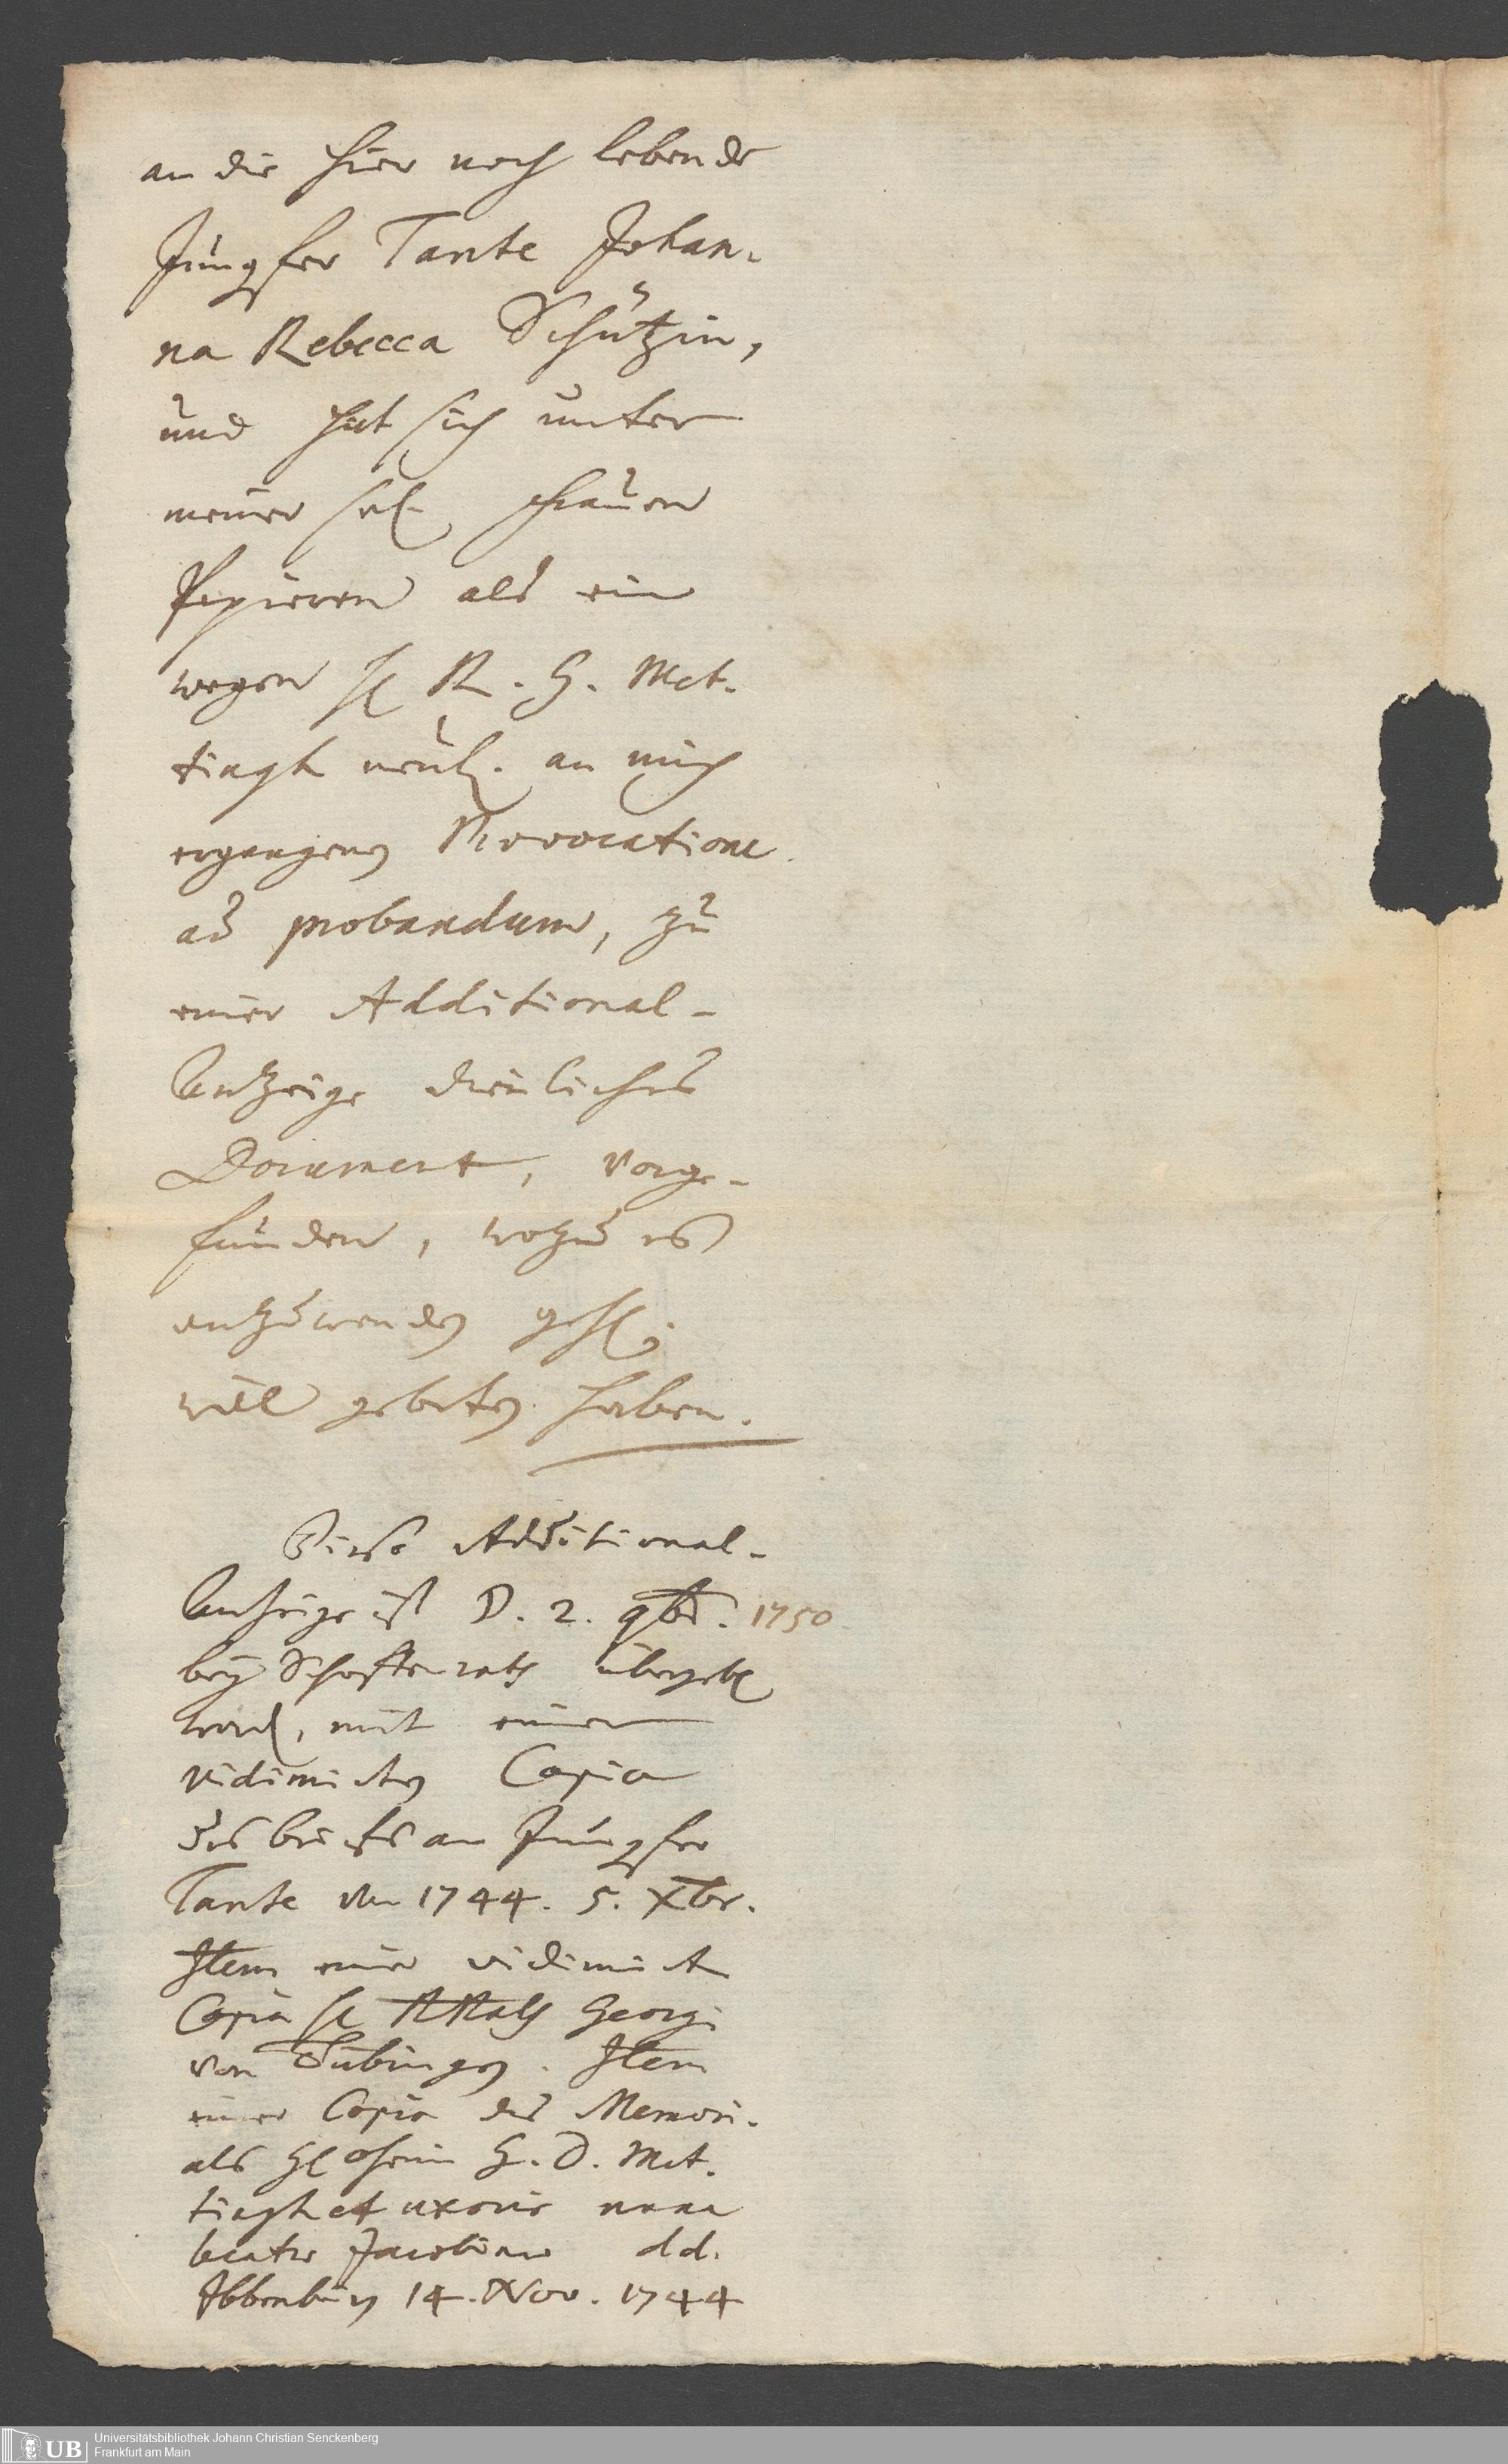 an die hier noch lebende
Jungfer Tante Johan-
na Rebecca Schützin,
und hat sich unter
meiner sel. Frauen
Papieren als ein
wegen H. R. G. Met-
tingh neul. an mich
ergangenen Provocatione
ad probandum, zu
einer Additional-
Antzeige dienliches
Document, vorge-
funden, wozu es
antzuwenden geh.
will gebeten haben.
Diese Additional-
Anzeige ist D. 2. 9br. 1750
bey Schöffenrath übergeb
word, mit einer
vidimirten Copia
des briefs an Jungfer
Tante von 1744. 5. Xbr.
Item einer vidimirt
Copia H. RRaths Georgi
von Tübingen. Item
einer Copia des Memori-
als H. Oheim G. D. Met-
tingh et uxoris nunc
beatae Jacobinae dd.
Ibbenbüren 14. Nov. 1744
Universitätsbibliothek Johann Christian Senckenberg
Frankfurt am Main
UB